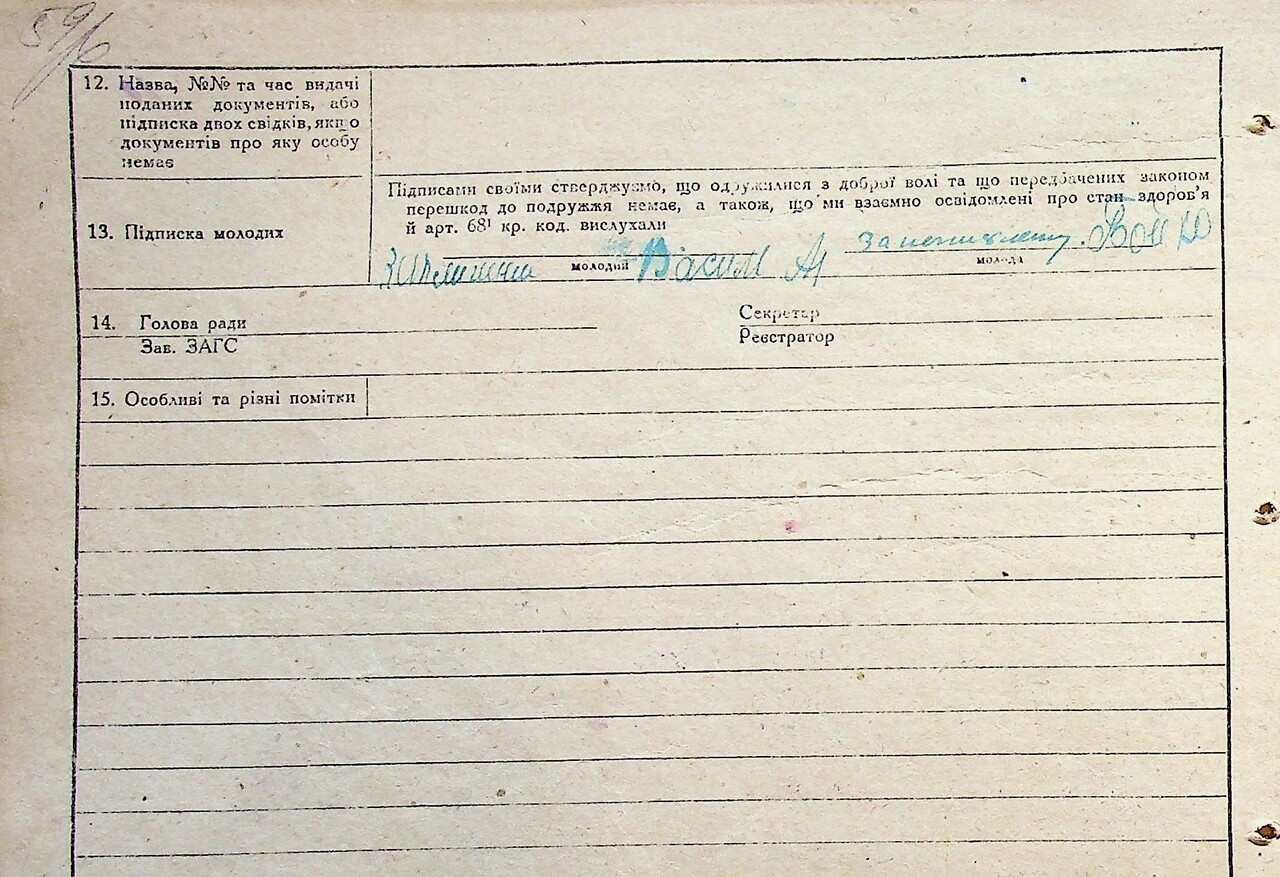 12. Назва, №№ та час видачі
поданих документів, або
підписка двох свідків, якщо
документів про яку особу
немає
Підписами своїми стверджуємо, що одружилися з доброї волі та що передбачених законом
перешкод до подружжя немає, а також, що ми взаємно освідомлені про стан здоров'я
й арт. 68¹ кр. код. вислухали
13. Підписка молодих
Бойко
Васил
молодий
молода
14. Голова ради
Секретар
Зав. ЗАГС
Реєстратор
15. Особливі та різні помітки